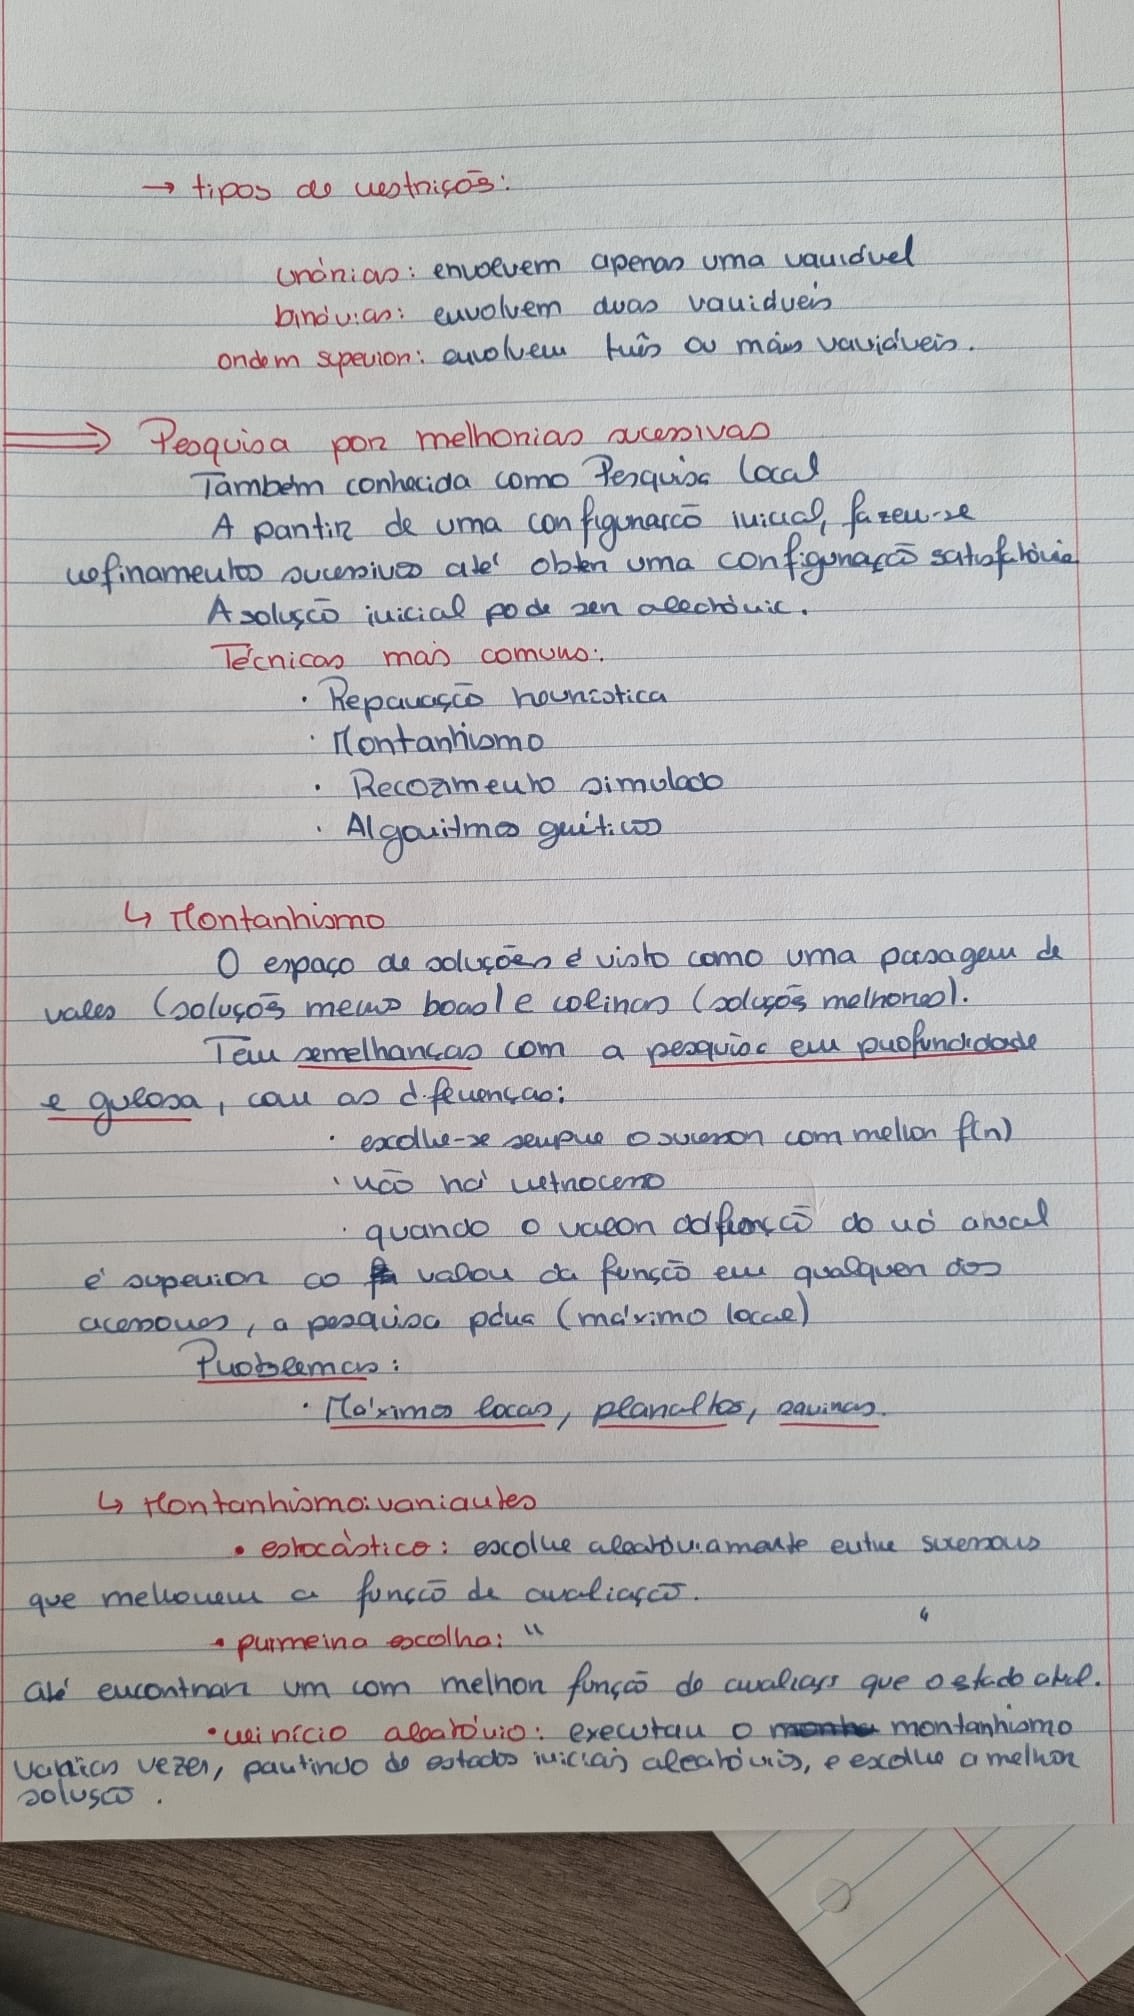 → tipos de restrições:
unárias: envolvem apenas uma variável
binárias: envolvem duas variáveis
ordem superior: envolvem três ou mais variáveis.
⇒ Pesquisa por melhorias sucessivas
Também conhecida como Pesquisa local
A partir de uma configuração inicial, fazer-se
refinamentos sucessivos até obter uma configuração satisfatória
A solução inicial pode ser aleatória.
Técnicas mais comuns:
· Reparação heurística
· Montanhismo
· Recozimento simulado
· Algoritmos genéticos
↳ Montanhismo
O espaço de soluções é visto como uma pasagem de
vales (soluções menos boas) e colinas (soluções melhores).
Tem semelhanças com a pesquisa em profundidade
e gulosa, com as diferenças:
· escolhe-se sempre o sucessor com melhor f(n)
· não há retrocesso
· quando o valor da função do nó atual
é superior ao valor da função em qualquer dos
sucessores, a pesquisa pára (máximo local)
Problemas:
· Máximos locais, planaltos, ravinas.
↳ Montanhismo: variantes
• estocástico: escolhe aleatoriamente entre sucessores
que melhorem a função de avaliação.
• primeira escolha: " "
até encontrar um com melhor função de avaliação que o estado atual.
• reinício aleatório: executar o montanhismo
várias vezes, partindo de estados iniciais aleatórios, e escolhe a melhor
solução.